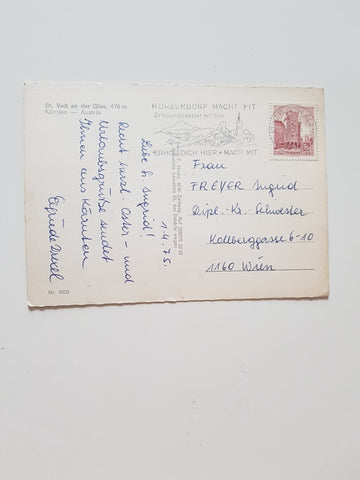 St. Veit an der Glan, 476 m
Kärnten — Austria
HÖRZENDORF MACHT FIT
Erholungsgebiet mit See
ERHOL DICH HIER + MACH MIT
1.4.75.
Liebe Sr. Ingrid!
Recht herzl. Oster- und
Urlaubsgrüße sendet
Ihnen aus Kärnten
Frau
FREYER Ingrid
Dipl.-Kr.-Schwester
Kollburggasse 6-10
1160 Wien